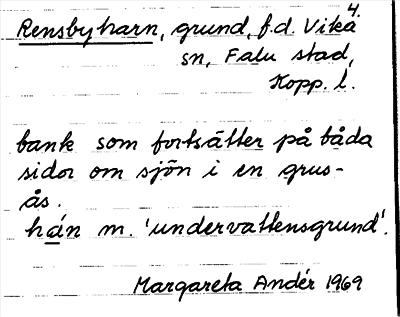 4.
Rensbyharn, grund, f.d. Vika
sn, Falu stad,
Kopp. l.
bank som fortsätter på båda
sidor om sjön i en grus-
ås.
hán m. 'undervattensgrund'.
Margareta Andér 1969